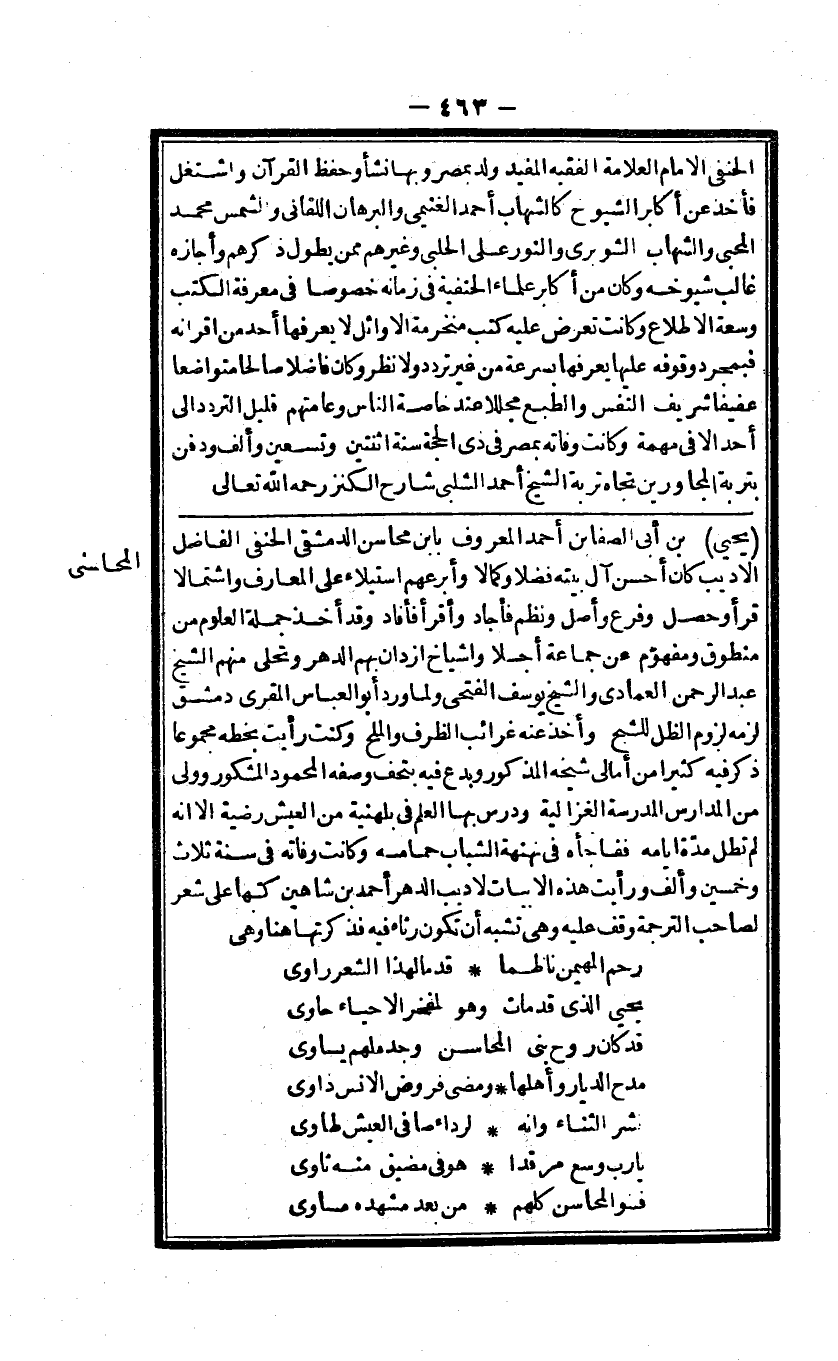 — ٤٦٣ —
الحنفى الامام العلامة الفقيه المفيد ولد بمصر وبها نشأ وحفظ القرآن واشتغل
فأخذ عن أكابر الشيوخ كالشهاب أحمد الغنيمى والبرهان اللقانى والشمس محمد
المحبى والشهاب الشوبرى والنور على الحلبى وغيرهم ممن يطول ذكرهم وأجازه
غالب شيوخه وكان من أكابر علماء الحنفية فى زمانه خصوصا فى معرفة الكتب
وسعة الاطلاع وكانت تعرض عليه كتب منخرمة الاوائل لا يعرفها أحد من اقرانه
فبمجرد وقوفه عليها يعرفها بسرعة من غير تردد ولا نظر وكان فاضلا صالحا متواضعا
عفيفا شريف النفس والطبع مجللا عند خاصة الناس وعامتهم قليل التردد الى
أحد الا فى مهمة وكانت وفاته بمصر فى ذى الحجة سنة اثنتين وتسعين وألف ودفن
بتربة المجاورين تجاه تربة الشيخ أحمد الشلبى شارح الكنز رحمه الله تعالى
المحاسنى
(يحيى) بن أبى الصفا بن أحمد المعروف بابن محاسن الدمشقى الحنفى الفاضل
الاديب كان أحسن آل بيته فضلا وكمالا وأبرعهم استيلاء على المعارف واشتمالا
قرأ وحصل وفرع وأصل ونظم فأجاد وأقرأ فأفاد وقد أخذ جملة العلوم من
منطوق ومفهوم عن جماعة أجلا واشياخ ازدان بهم الدهر وتحلى منهم الشيخ
عبد الرحمن العمادى والشيخ يوسف الفتحى ولما ورد أبو العباس المقرى دمشق
لزمه لزوم الظل للشبح وأخذ عنه غرائب الظرف والملح وكنت رأيت بخطه مجموعا
ذكر فيه كثيرا من أمالى شيخه المذكور ويدع فيه بتحف وصفه المحمود المشكور وولى
من المدارس المدرسة الغزالية ودرس بها العلم فى بلهنية من العيش رضية الا انه
لم تطل مدّة ايامه ففاجأه فى نهنهة الشباب حمامه وكانت وفاته فى سنة ثلاث
وخمسين وألف ورأيت هذه الابيات لاديب الدهر أحمد بن شاهين كتبها على شعر
لصاحب الترجمة وقف عليه وهى تشبه أن تكون رثاء فيه فذكرتها هنا وهى
رحم المهيمن ناظما * قدما لهذا الشعر راوى
يحيى الذى قد مات وهو لمفخر الاحياء حاوى
قد كان روح بنى المحاسن وجد ملهم يساوى
مدح الديار وأهلها * ومضى فروض الانس ذاوى
نشر الثناء وانه * لرداء صافى العيش طاوى
يارب وسع مرقدا * هو فى مضيق منه ثاوى
فبنو المحاسن كلهم * من بعد مشهده مساوى